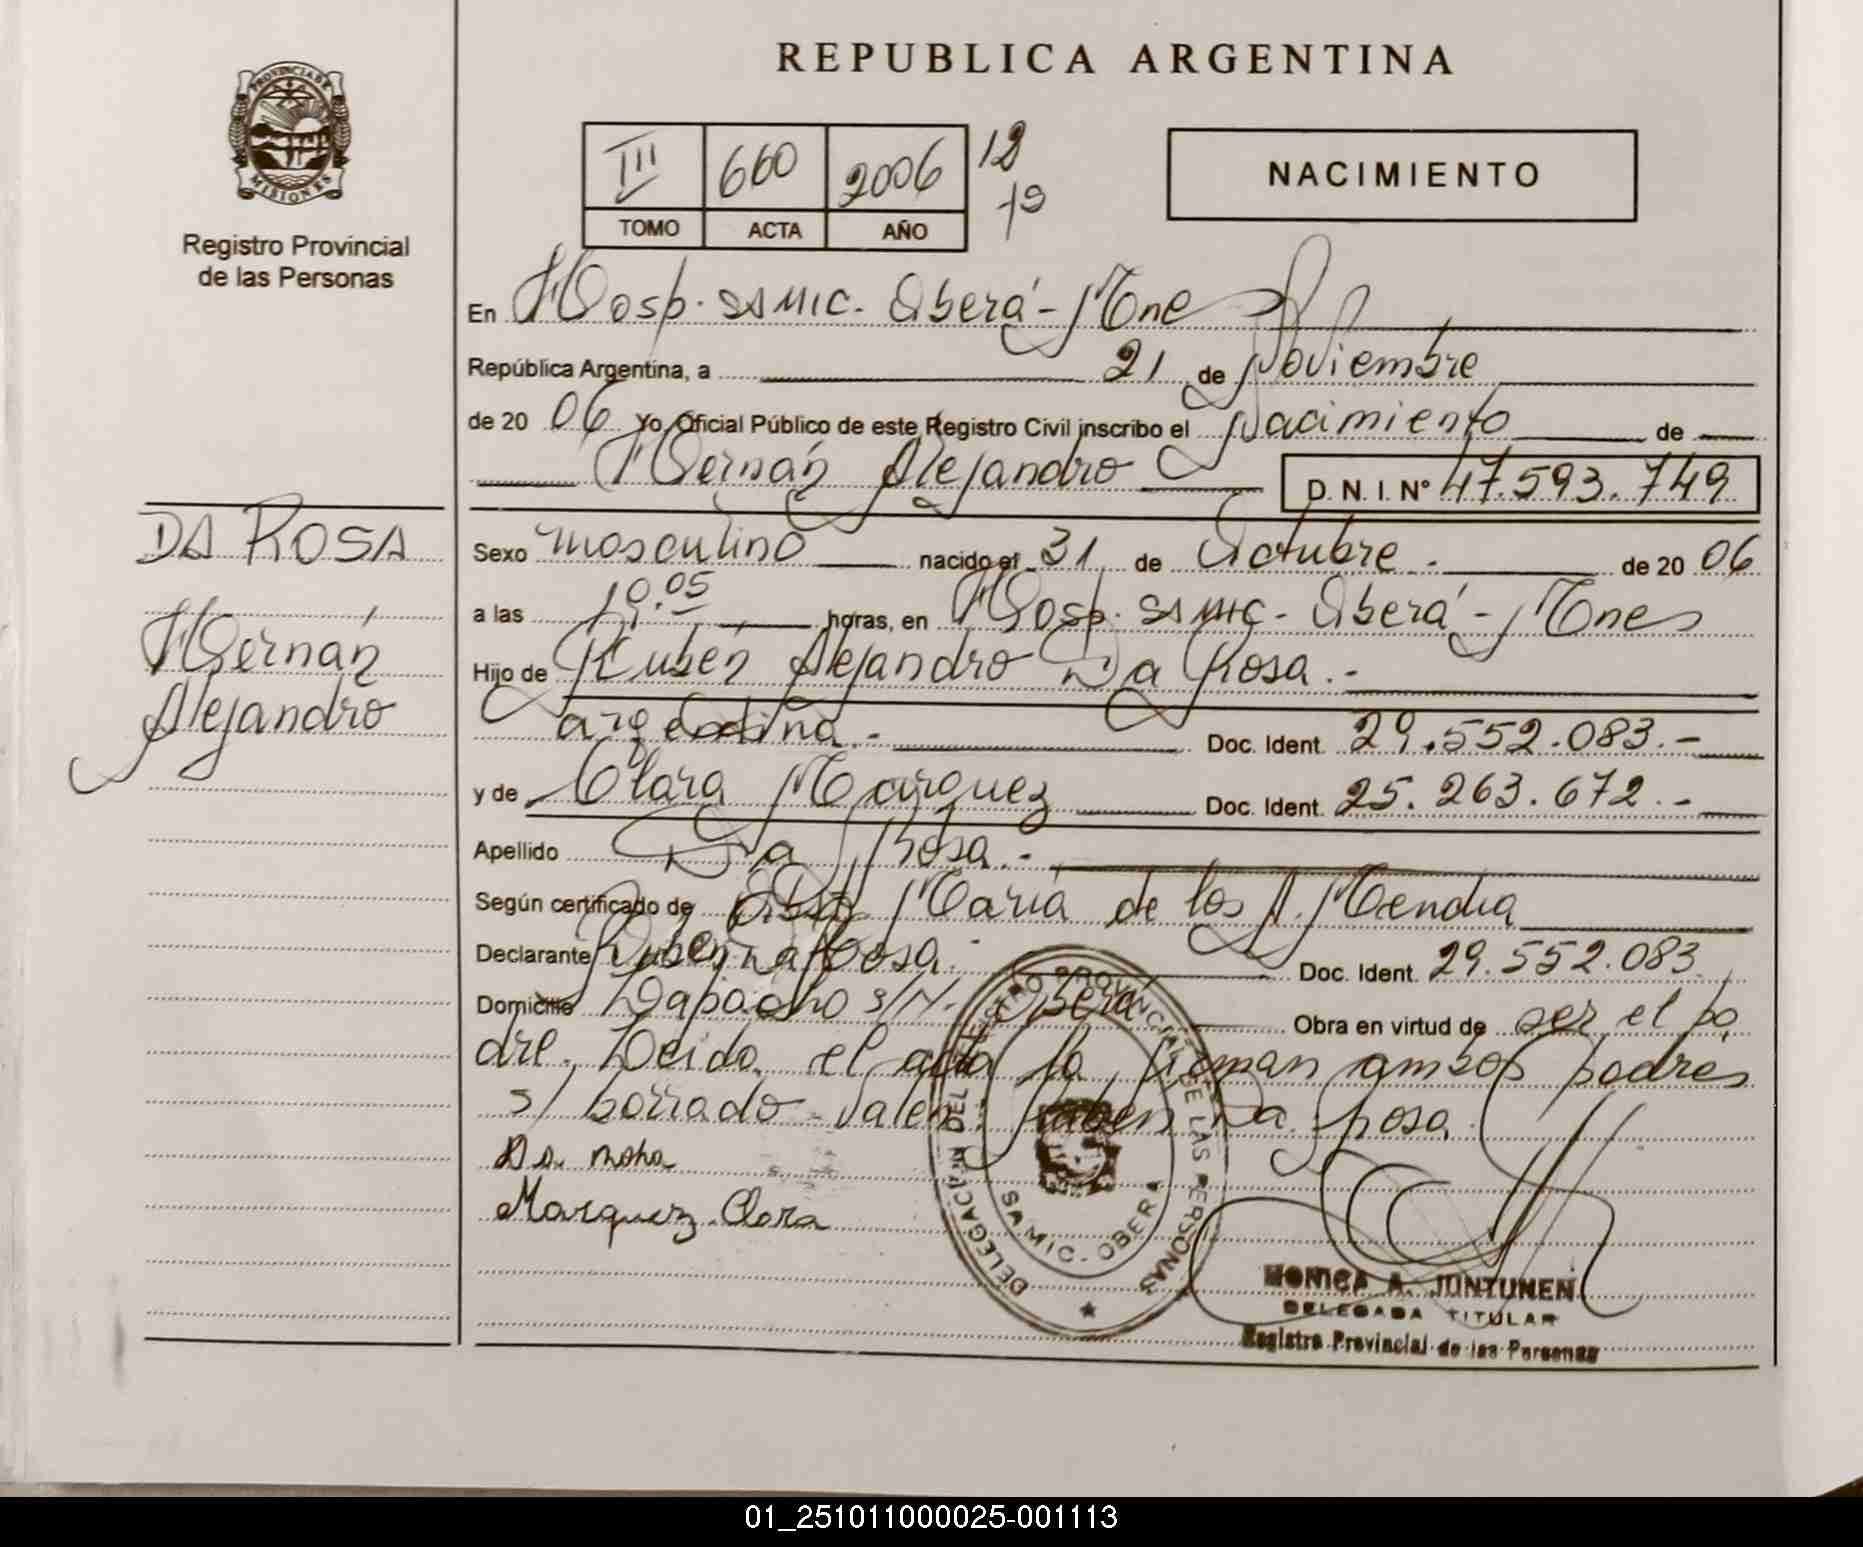 REPUBLICA ARGENTINA
PROVINCIA DE
MISIONES
Registro Provincial
de las Personas
III 660 2006 12
TOMO ACTA AÑO
NACIMIENTO
En Hosp. SAMIC. Oberá - Mnes
República Argentina, a 21 de Noviembre
de 20 06 Yo, Oficial Público de este Registro Civil inscribo el Nacimiento de
Hernán Alejandro D. N. I. N° 47.593.749
DA ROSA
Hernán
Alejandro
Sexo masculino nacido el 31 de Octubre.- de 20 06
a las 10.05 horas, en Hosp. SAMIC - Oberá - Mnes
Hijo de Rubén Alejandro Da Rosa.-
argentina.- Doc. Ident. 29.552.083.-
y de Clara Marquez Doc. Ident. 25.263.672.-
Apellido Da Rosa.-
Según certificado de María de los A. Mendia
Declarante Rubén Da Rosa.- Doc. Ident. 29.552.083
Domicilio Lapacho s/N. Oberá Obra en virtud de ser el pa
dre. Leida el acta la firman ambos padres
s/ borrado - Valen: Rubén Da Rosa
Marquez Clara
DELEGACION DEL REGISTRO PROVINCIAL DE LAS PERSONAS
SAMIC. OBERA
MONICA A. JUNTUNEN
DELEGADA TITULAR
Registro Provincial de las Personas
01_251011000025-001113